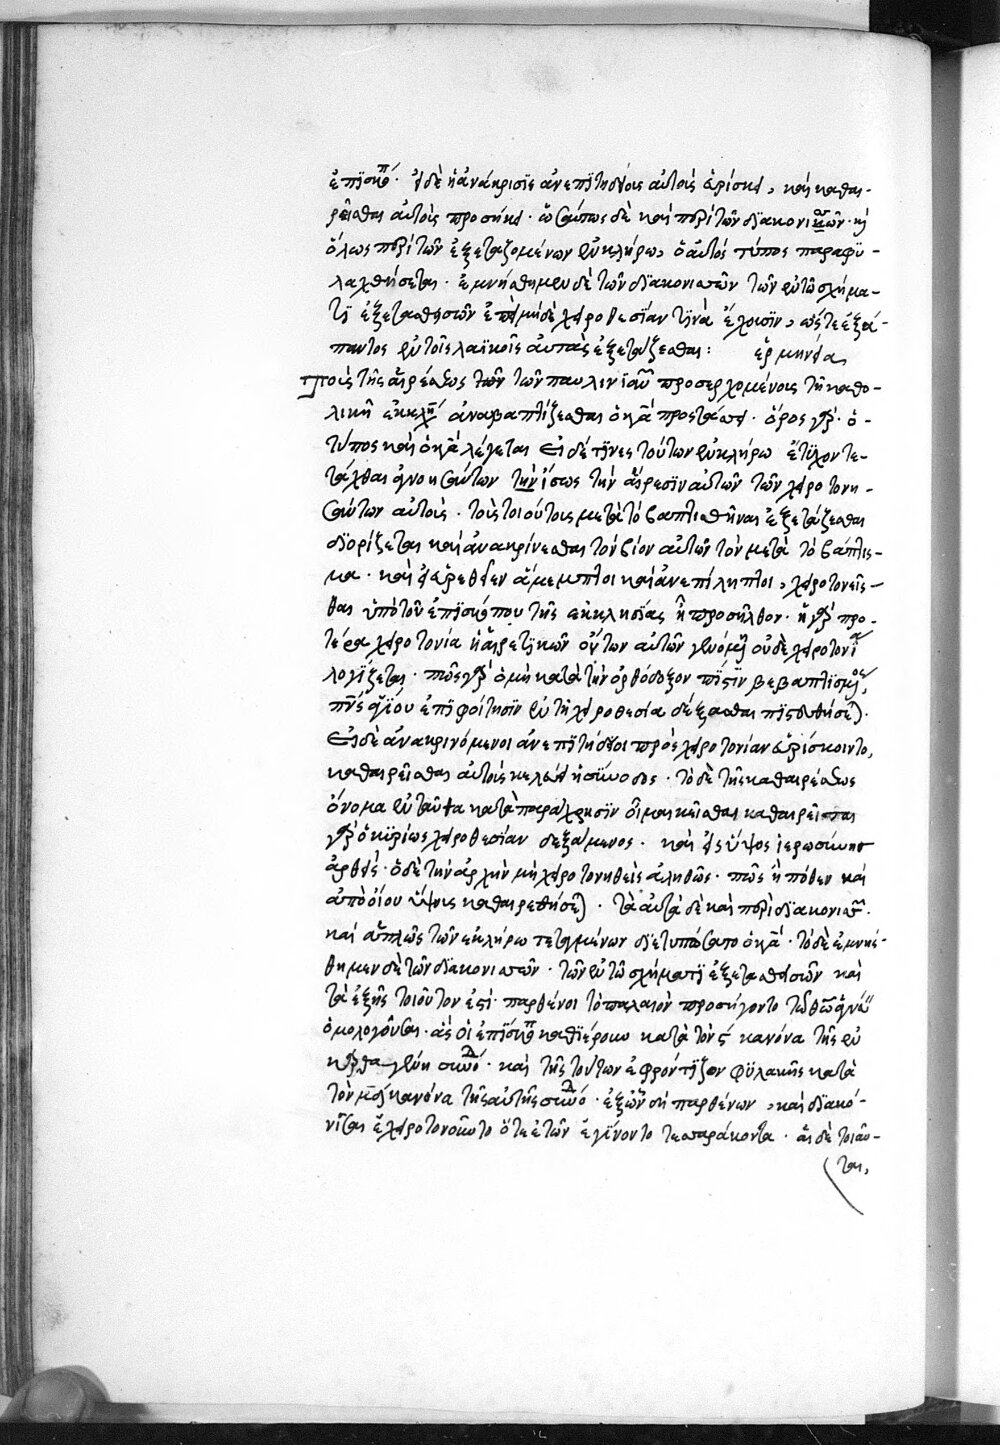 ἐπϊσκό^π. εἰ δὲ ἡ ἀνάκρισϊς ἀνεπϊτηδείους αὐτοὺς εὑρίσκει, καὶ καθαι-
ρεῖσθαι αὐτοὺς προσήκει. ὡσαύτως δὲ καὶ περὶ τῶν δϊακονισσῶν. καὶ
ὅλως περὶ τῶν ἐξεταζομένων ἐν κλήρω, ὁ αὐτὸς τύπος παραφϋ-
λαχθήσεται. ἐμνήσθημεν δὲ τῶν δϊακονισσῶν τῶν ἐν τῶ σχήμα-
τϊ ἐξετασθησῶν ἐπεὶ μὴδὲ χειροθεσίαν τϊνὰ ἔχουσϊν, ὥστε ἐξά-
παντος ἐν τοῖς λαϊκοῖς αὐτὰς ἐξετάζεσθαι: ἑρμηνεία
Τοὺς τῆς αἱρέσεως τῶν τῶν παυλινϊαν προσερχομένους τῆ καθο-
λικῆ ἐκκλη ἀναβαπτίζεσθαι ὁ κα προστάσσει. ὅρος γὰρ. ὁ
τύπος καὶ ὁ κα λέγεται Εἰ δέ τϊνες τούτων ἐν κλήρω ἔτϋχον τε-
τάχθαι ἀγνοησάντων τὴν ἴσως τὴν αἵρεσϊν αὐτῶν τῶν χειροτονη-
σάντων αὐτοὺς. τοὺς τοιούτους μετὰ τὸ βαπτισθῆναι ἐξετάζεσθαι
δϊορίζεται καὶ ἀνακρίνεσθαι τὸν βίον αὐτῶν τὸν μετὰ τὸ βάπτισ-
μα. καὶ εἰ εὑρεθεῖεν ἄμεμπτοι καὶ ἀνεπίληπτοι, χειροτονεῖσ-
θαι ὑπὸ τοῦ ἐπϊσκόπου τῆς ἐκκλησϊας ἧ προσῆλθον. ἡ γὰρ προ-
τέρα χειροτονία ἡ αἱρετϊκῶν ὄντων αὐτῶν γενομένη οὐδὲ χειροτονία
λογίζεται. πῶς γὰρ ὁ μὴ κατὰ τὴν ὀρθόδοξον πίστϊν βεβαπτϊσμένος,
πνς ἁγϊου ἐπϊφοίτησϊν ἐν τῆ χειροθεσία δέξασθαι πϊστευθήσεται.
Εἰ δὲ ἀνακρινόμενοι ἀνεπϊτήδειοι πρὸς χειροτονίαν εὑρίσκοιντο,
καθαιρεῖσθαι αὐτοὺς κελεύει ἡ σϋνοδος. τὸ δὲ τῆς καθαιρέσεως
ὄνομα ἐνταῦθα κατὰ παράχρησϊν οἶμαι κεῖσθαι καθαιρεῖται
γὰρ ὁ κϋρίως χειροθεσίαν δεξάμενος. καὶ εἰς ὕψος ἱερωσύνης
ἀρθείς. ὁ δὲ τὴν ἀρχὴν μὴ χειροτονηθεὶς ἀληθῶς. πῶς ἢ πόθεν καὶ
ἀπὸ οἵου ὕψους καθαιρεθήσεται. τὰ αὐτὰ δὲ καὶ περὶ δϊακονισσ.
καὶ ἁπλῶς τῶν ἐν κλήρω τεταγμένων δϊετυπώσατο ὁ κα. τὸ δὲ ἐμνήσ-
θημεν δὲ τῶν δϊακονισσῶν. τῶν ἐν τῶ σχήματϊ ἐξετασθεισῶν καὶ
τὰ ἑξῆς τοιοῦτον ἐστί. παρθένοι τὸ παλαιὸν προσήγοντο τῶ θεῶ ἁγνεί
ὁμολογοῦσαι. ἃς οἱ ἐπϊσκο καθϊέρουν κατὰ τὸν ϛ κανόνα τῆς ἐν
καρθαγένη συνόδ. καὶ τῆς τούτων ἐφρόντϊζον φϋλακῆς κατὰ
τὸν μζ κανόνα τῆς αὐτῆς συνόδ. ἐξὧν δὴ παρθένων, καὶ δϊακό-
νϊσσαι ἐχειροτονοῦντο ὅτε ἐτῶν ἐγϊνοντο τεσσαράκοντα. αἱ δὲ τοιαῦ-
ται,